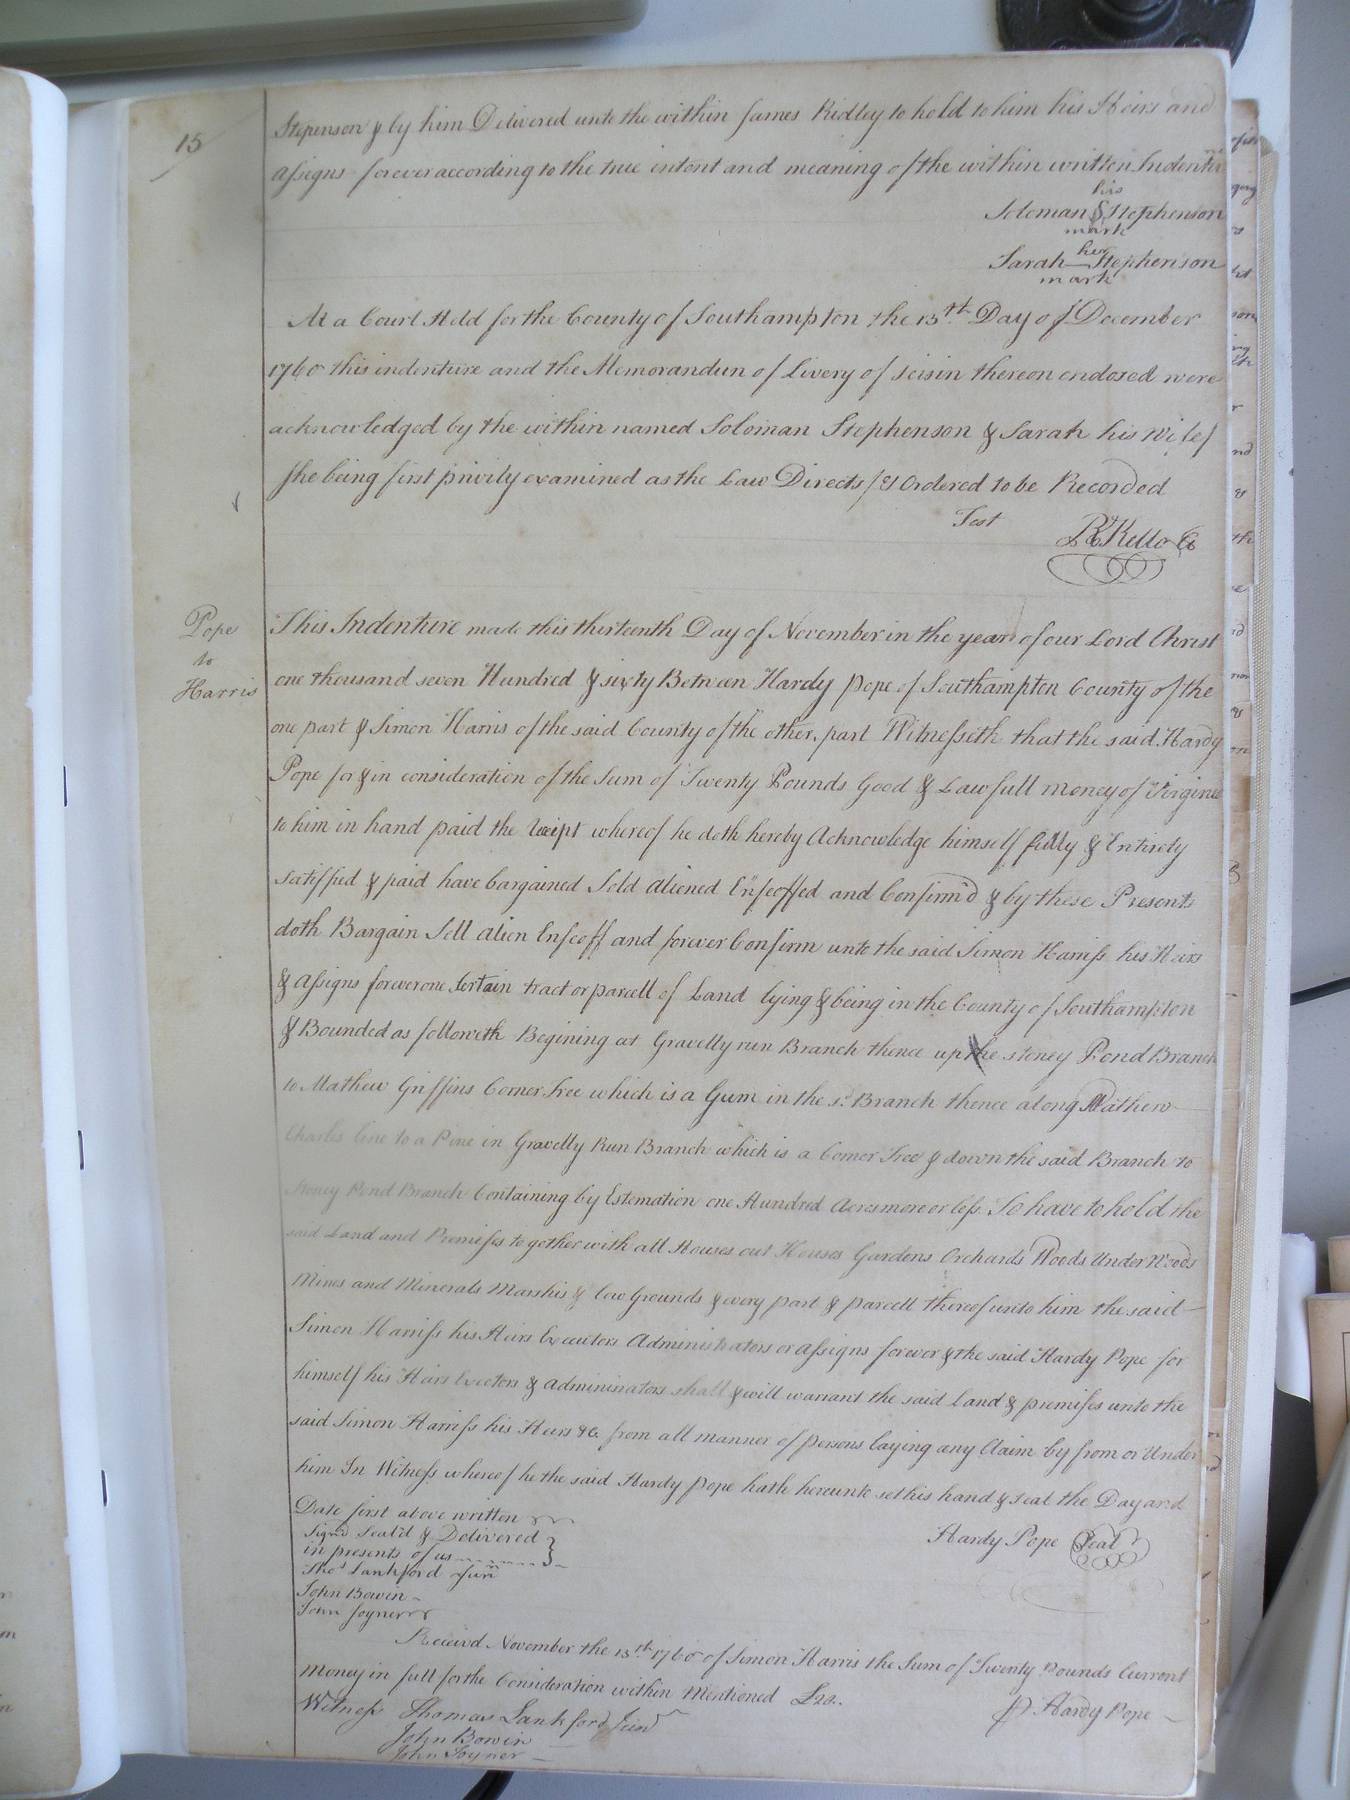 15
Stepenson & by him Delivered unto the within James Ridley to hold to him his Heirs and
assigns forever according to the true intent and meaning of the within written Indenture
his
Soloman S Stephenson
mark
her
Sarah — Stephenson
mark
At a Court Held for the County of Southampton the 13th Day of December
1760 this indenture and the Memorandun of Livery of seisin thereon endosed were
acknowledged by the within named Soloman Stephenson & Sarah his Wife (
She being first privily examined as the Law Directs) & Ordered to be Recorded
Test
Rd Kello C
Pope
to
Harris
This Indenture made this thirteenth Day of November in the year of our Lord Christ
one thousand seven Hundred & sixty Between Hardy Pope of Southampton County of the
one part & Simon Harris of the said County of the other, part Witnesseth that the said Hardy
Pope for & in consideration of the Sum of Twenty Pounds Good & Lawfull money of Virginia
to him in hand paid the receipt whereof he doth hereby Acknowledge himself fully & Entirely
satisfied & paid have bargained Sold aliened Enfeoffed and Confirm'd & by these Presents
doth Bargain Sell alien Enfeoff and forever Confirm unto the said Simon Harriss his Heirs
& assigns forever one Certain tract or parcell of Land lying & being in the County of Southampton
& Bounded as followeth Begining at Gravelly run Branch thence up the stoney Pond Branch
to Mathew Griffins Corner Tree which is a Gum in the sd. Branch thence along Mathew
Charles line to a Pine in Gravelly Run Branch which is a Corner Tree & down the said Branch to
Stoney Pond Branch Containing by Estemation one Hundred Acres more or less To have to hold the
said Land and Premises to gether with all Houses out Houses Gardens Orchards Woods Under Woods
Mines and Minerals Marshis & low Grounds & every part & parcell thereof unto him the said
Simon Harriss his Heirs Executors Administrators or assigns forever & the said Hardy Pope for
himself his Heirs Exectors & Admininators shall & will warrant the said Land & premises unto the
said Simon Harriss his Heirs &c. from all manner of persons laying any Claim by from or Under
him In Witness whereof he the said Hardy Pope hath hereunto set his hand & seal the Day and
Date first above written
Sign'd Seal'd & Delivered
in presents of us
Hardy Pope Seal
Thos Lankford Junr
John Bowin
John Joyner
Receivd November the 13th 1760 of Simon Harris the Sum of Twenty Pounds Current
Money in full for the Consideration within Mentioned £20.
Witness Thomas Lankford Junr
P Hardy Pope
John Bowin
John Joyner